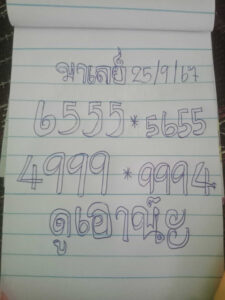 มาเลย์ 25/9/67
6555*5655
4999*9994
ดูเอาน๊ะ